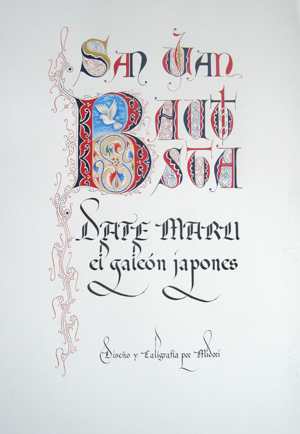 San Juan
BAUTI
STA
DATE MARU
el galeón japones
Diseño y Caligrafía por Midori